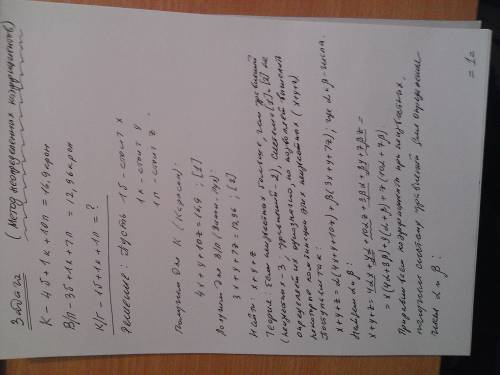 Задача (Метод неопределенных коэффициентов)
К – 4б + 1к + 10п = 16,9 крон
В/п – 3б + 1к + 7п = 12,96 крон
К/г – 1б + 1к + 1п = ?
Решение: Пусть 1б – стоит x
1к – стоит y
1п – стоит z.
Получим для К
4x + y + 10z = 16,9 ; [1]
Получим для В/п
3x + y + 7z = 12,96 ; [2]
Найти: x + y + z
Теория: Если неизвестных больше, чем уравнений
(неизвестных – 3, уравнений – 2), система [1] – [2] не
определяет их однозначно, но позволяет вычислить
некоторые комбинации этих неизвестных (x+y+z)
Поступим так:
x + y + z = α(4x + y + 10z) + β(3x + y + 7z); где α и β – числа.
Найдем α и β:
x + y + z = 4αx + αy + 10αz + 3βx + βy + 7βz =
= x(4α + 3β) + y(α + β) + z(10α + 7β)
Приравняем коэффициенты при неизвестных,
получим систему уравнений для определения
чисел α и β:
= 1 =